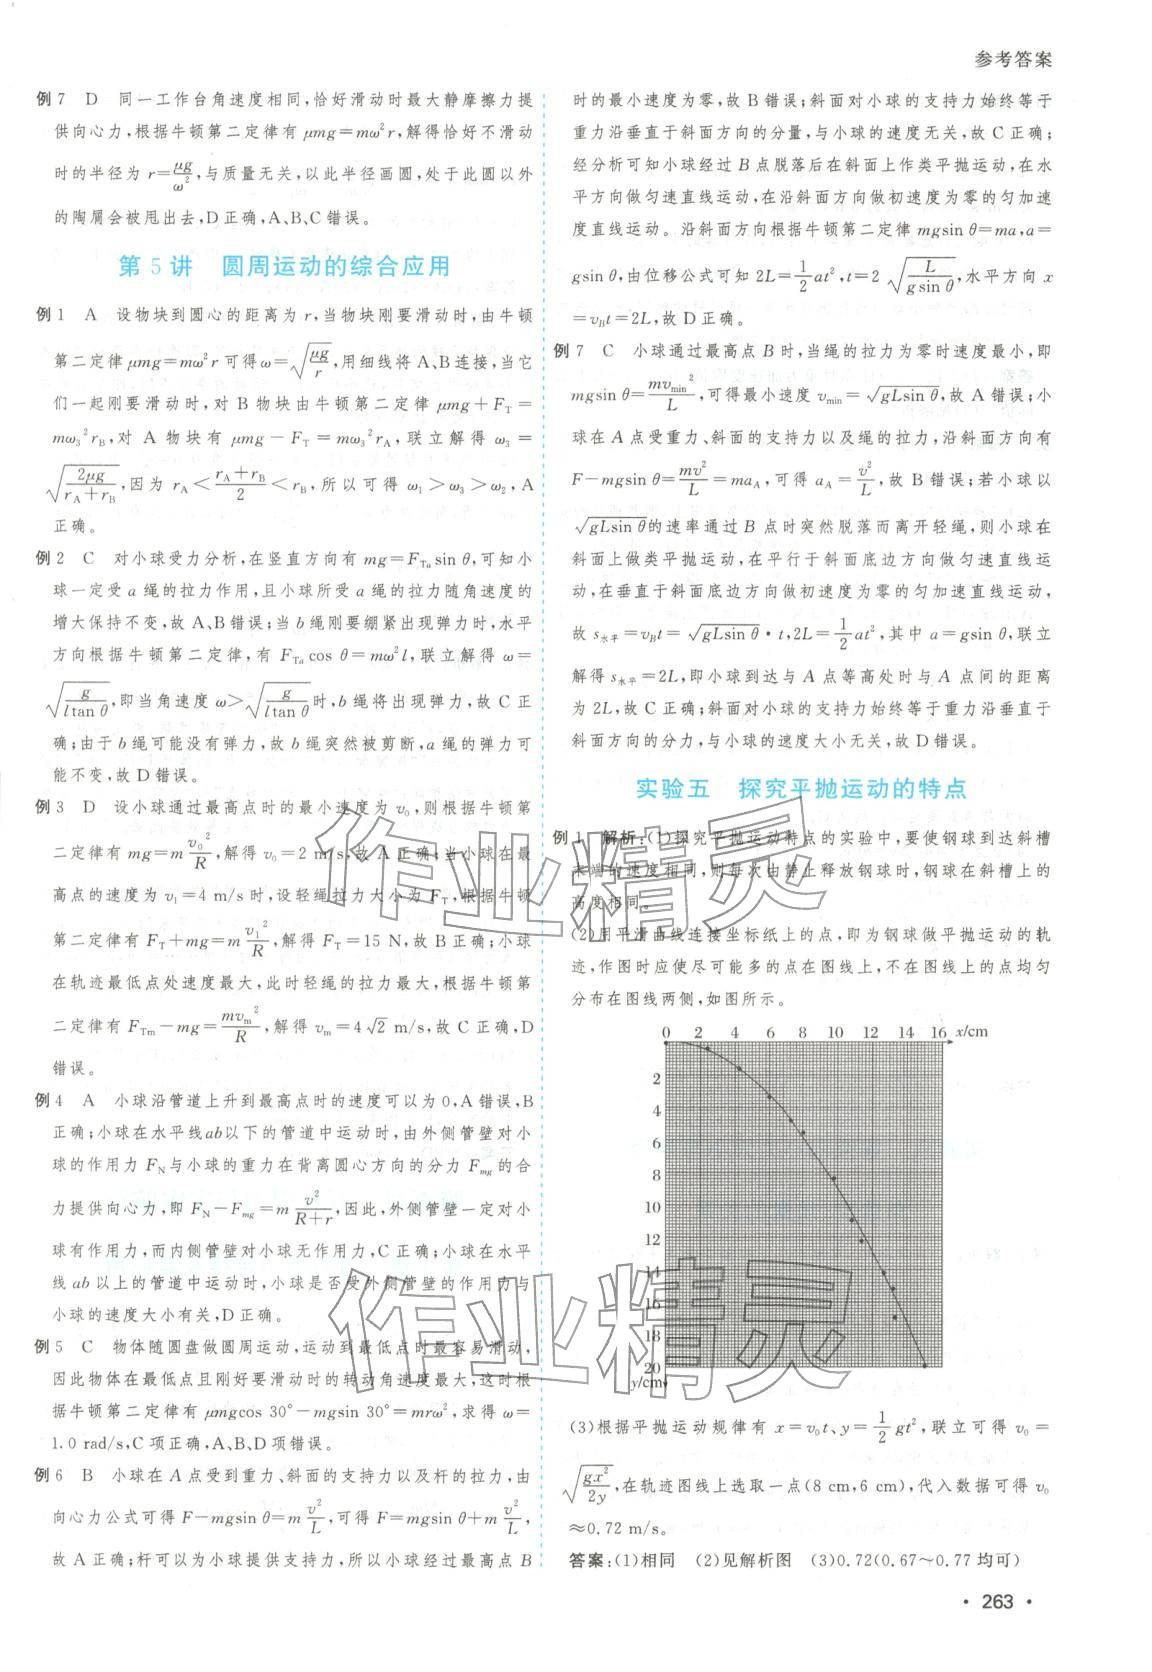 参考答案
例 7　D　同一工作台角速度相同,恰好滑动时最大静摩擦力提
供向心力,根据牛顿第二定律有 μmg=mω²r,解得恰好不滑动
时的半径为 r=μg/ω²,与质量无关,以此半径画圆,处于此圆以外
的陶屑会被甩出去,D正确,A、B、C错误。
第 5 讲　圆周运动的综合应用
例 1　A　设物块到圆心的距离为 r,当物块刚要滑动时,由牛顿
第二定律 μmg=mω²r 可得 ω=√(μg/r),用细线将 A、B连接,当它
们一起刚要滑动时,对 B 物块由牛顿第二定律 μmg+F_T=
mω₃²r_B,对 A 物块有 μmg-F_T=mω₃²r_A,联立解得 ω₃=
√(2μg/(r_A+r_B)),因为 r_A<(r_A+r_B)/2<r_B,所以可得 ω₁>ω₃>ω₂,A
正确。
例 2　C　对小球受力分析,在竖直方向有 mg=F_Ta sin θ,可知小
球一定受 a 绳的拉力作用,且小球所受 a 绳的拉力随角速度的
增大保持不变,故 A、B错误;当 b 绳刚要绷紧出现弹力时,水平
方向根据牛顿第二定律,有 F_Ta cos θ=mω²l,联立解得 ω=
√(g/(ltan θ)),即当角速度 ω>√(g/(ltan θ))时,b 绳将出现弹力,故 C 正
确;由于 b 绳可能没有弹力,故 b 绳突然被剪断,a 绳的弹力可
能不变,故 D 错误。
例 3　D　设小球通过最高点时的最小速度为 v₀,则根据牛顿第
二定律有 mg=m v₀²/R,解得 v₀=2 m/s,故 A 正确;当小球在最
高点的速度为 v₁=4 m/s 时,设轻绳拉力大小为 F_T,根据牛顿
第二定律有 F_T+mg=m v₁²/R,解得 F_T=15 N,故 B 正确;小球
在轨迹最低点处速度最大,此时轻绳的拉力最大,根据牛顿第
二定律有 F_Tm-mg=mv_m²/R,解得 v_m=4√2 m/s,故 C 正确,D
错误。
例 4　A　小球沿管道上升到最高点时的速度可以为 0,A 错误,B
正确;小球在水平线ab以下的管道中运动时,由外侧管壁对小
球的作用力 F_N与小球的重力在背离圆心方向的分力 F_mg 的合
力提供向心力,即 F_N-F_mg=m v²/(R+r),因此,外侧管壁一定对小
球有作用力,而内侧管壁对小球无作用力,C正确;小球在水平
线 ab 以上的管道中运动时,小球是否受外侧管壁的作用力与
小球的速度大小有关,D正确。
例 5　C　物体随圆盘做圆周运动,运动到最低点时最容易滑动,
因此物体在最低点且刚好要滑动时的转动角速度最大,这时根
据牛顿第二定律有 μmgcos 30°-mgsin 30°=mrω²,求得 ω=
1.0 rad/s,C项正确,A、B、D项错误。
例 6　B　小球在A点受到重力、斜面的支持力以及杆的拉力,由
向心力公式可得 F-mgsin θ=m v²/L,可得 F=mgsin θ+m v²/L,
故 A正确;杆可以为小球提供支持力,所以小球经过最高点 B
时的最小速度为零,故 B 错误;斜面对小球的支持力始终等于
重力沿垂直于斜面方向的分量,与小球的速度无关,故 C正确;
经分析可知小球经过 B 点脱落后在斜面上作类平抛运动,在水
平方向做匀速直线运动,在沿斜面方向做初速度为零的匀加速
度直线运动。沿斜面方向根据牛顿第二定律 mgsin θ=ma,a=
gsin θ,由位移公式可知 2L=1/2 at²,t=2 √(L/(gsin θ)),水平方向 x
=v_Bt=2L,故 D 正确。
例 7　C　小球通过最高点 B 时,当绳的拉力为零时速度最小,即
mgsin θ=mv_min²/L,可得最小速度 v_min=√(gLsin θ),故 A 错误;小
球在 A点受重力、斜面的支持力以及绳的拉力,沿斜面方向有
F-mgsin θ=mv²/L=ma_A,可得 a_A=v²/L,故 B 错误;若小球以
√(gLsin θ)的速率通过 B 点时突然脱落而离开轻绳,则小球在
斜面上做类平抛运动,在平行于斜面底边方向做匀速直线运
动,在垂直于斜面底边方向做初速度为零的匀加速直线运动,
故 s_水平=v_Bt=√(gLsin θ)·t,2L=1/2 at²,其中 a=gsin θ,联立
解得 s_水平=2L,即小球到达与 A 点等高处时与 A 点间的距离
为 2L,故 C正确;斜面对小球的支持力始终等于重力沿垂直于
斜面方向的分力,与小球的速度大小无关,故 D错误。
实验五　探究平抛运动的特点
例 1　解析:(1)探究平抛运动特点的实验中,要使钢球到达斜槽
末端的速度相同,则每次由静止释放钢球时,钢球在斜槽上的
高度相同。
(2)用平滑曲线连接坐标纸上的点,即为钢球做平抛运动的轨
迹,作图时应使尽可能多的点在图线上,不在图线上的点均匀
分布在图线两侧,如图所示。
0 2 4 6 8 10 12 14 16 x/cm
2
4
6
8
10
12
14
16
18
20
y/cm
(3)根据平抛运动规律有 x=v₀t、y=1/2 gt²,联立可得 v₀=
√(gx²/2y),在轨迹图线上选取一点(8 cm,6 cm),代入数据可得 v₀
≈0.72 m/s。
答案:(1)相同　(2)见解析图　(3)0.72(0.67～0.77 均可)
作业精灵
作业精灵
· 263 ·